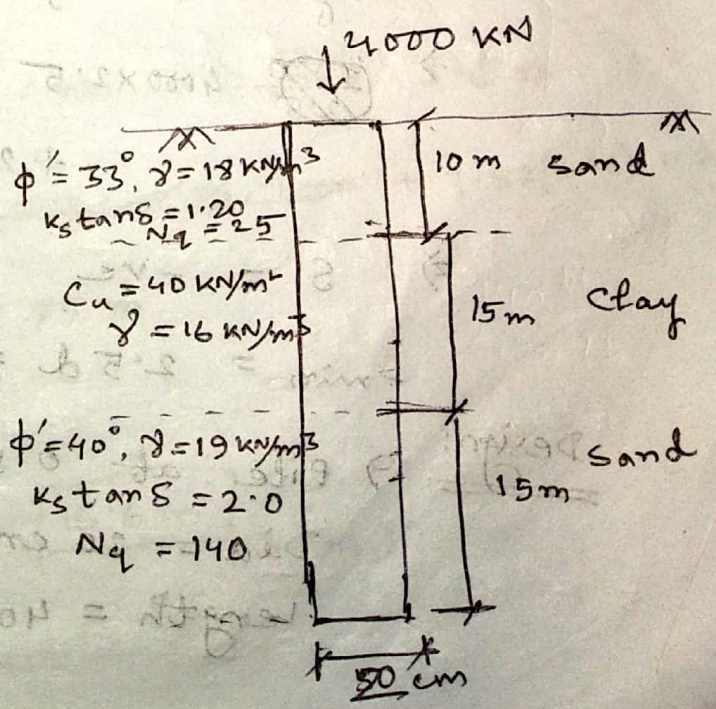 4000 KN
ϕ' = 33°, γ = 18 KN/m³
Ks tanδ = 1.20
Nq = 25
10 m sand
Cu = 40 KN/m²
γ = 16 KN/m³
15 m Clay
ϕ' = 40°, γ = 19 KN/m³
Ks tanδ = 2.0
Nq = 140
15 m Sand
50 cm